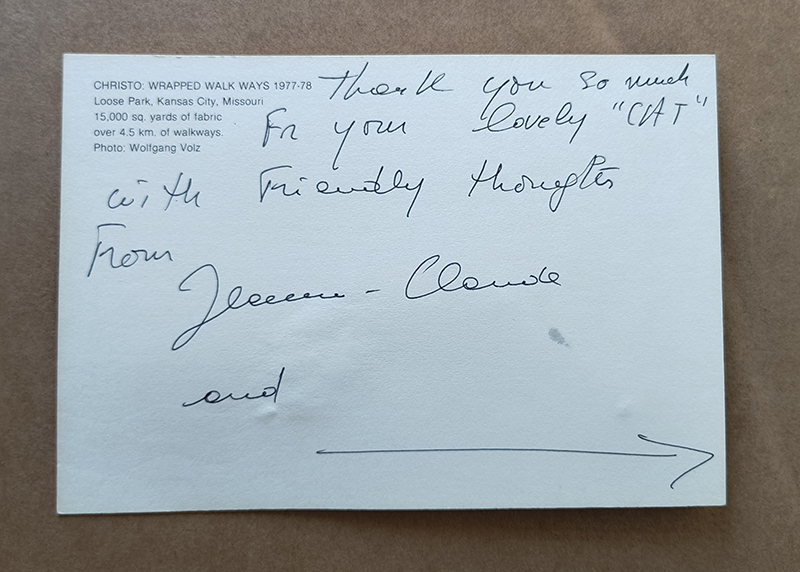 CHRISTO: WRAPPED WALK WAYS 1977-78
Loose Park, Kansas City, Missouri
15,000 sq. yards of fabric
over 4.5 km. of walkways.
Photo: Wolfgang Volz
Thank you so much
For your lovely "CAT"
with Friendly thoughts
From
Jeanne-Claude
and